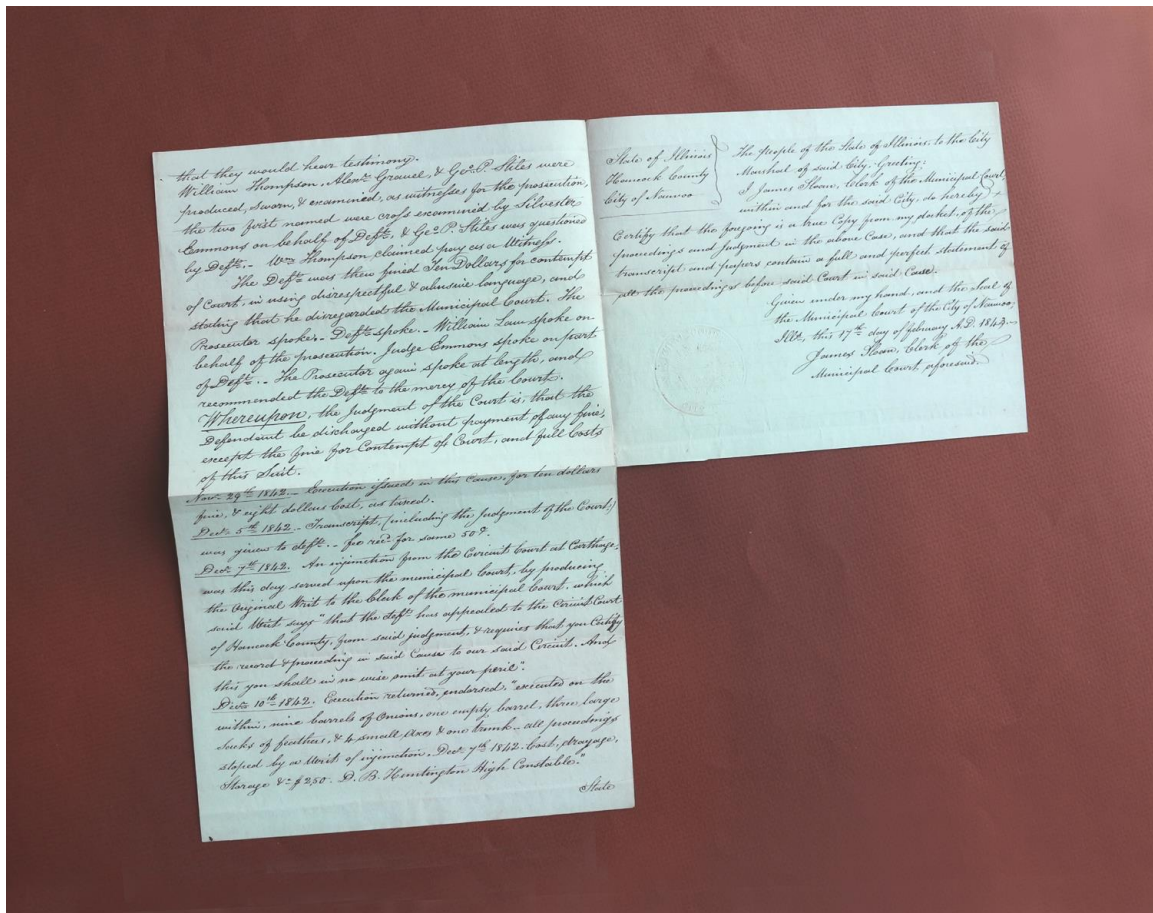 that they would hear testimony.
William Thompson, Alexr. Grauel, & Geo. P. Stiles were
produced, Sworn, & examined, as witnesses for the prosecution,
the two first named were cross examined by Silvester
Emmons on behalf of Deft. & Geo. P. Stiles was questioned
by Deft. - Wm. Thompson claimed pay as a Witness.
The Deft. was then fined Ten Dollars for contempt
of Court, in using disrespectful & abusive language, and
stating that he disregarded the Municipal Court. The
Prosecutor spoke. - Deft. spoke. - William Law spoke on
behalf of the prosecution. Judge Emmons spoke on part
of Deft. - The Prosecutor again spoke at length, and
recommended the Deft. to the mercy of the Court.
Whereupon, the Judgment of the Court is, that the
Defendant be discharged without payment of any fine,
except the fine for Contempt of Court, and full Costs
of this Suit.
Nov. 29th 1842. - Execution issued in this Cause, for ten dollars
fine, & eight dollars Cost, as taxed.
Dec. 5th 1842 - Transcript, (including the Judgment of the Court)
was given to deft. - fee recd. for same 50
Dec. 7th 1842. An injunction from the Circuit Court at Carthage,
was this day served upon the municipal Court, by producing
the Original Writ to the Clerk of the municipal Court, which
said Writ says "that the deft. has appealed to the Circuit Court
of Hancock County, from said judgment, & requires that you Certify
the record & proceeding in said Cause to our said Circuit. And
this you shall in no wise omit at your peril".
Dec. 10th 1842. Execution returned, endorsed "executed on the
within, nine barrels of Onions, one empty barrel, three large
sacks of feathers, & 4 small do & one trunk - all proceedings
staped by a Writ of injunction. Dec. 7th 1842. Cost, drayage,
Storage &c $2,50. D. B. Huntington High Constable."
State
State of Illinois
Hancock County
City of Nauvoo
The People of the State of Illinois, to the City
Marshal of said City. Greeting:
I James Sloan, Clerk of the Municipal Court,
within and for the said City, do hereby
Certify that the foregoing is a true Copy from my docket, of the
proceedings and Judgment in the above Case, and that the said
transcript and papers contain a full and perfect statement of
all the proceedings before said Court in said Case.
Given under my hand, and the Seal of
the Municipal Court of the City of Nauvoo,
Ills. this 17th day of February A.D. 1843. -
James Sloan, Clerk of the
Municipal Court, aforesaid.